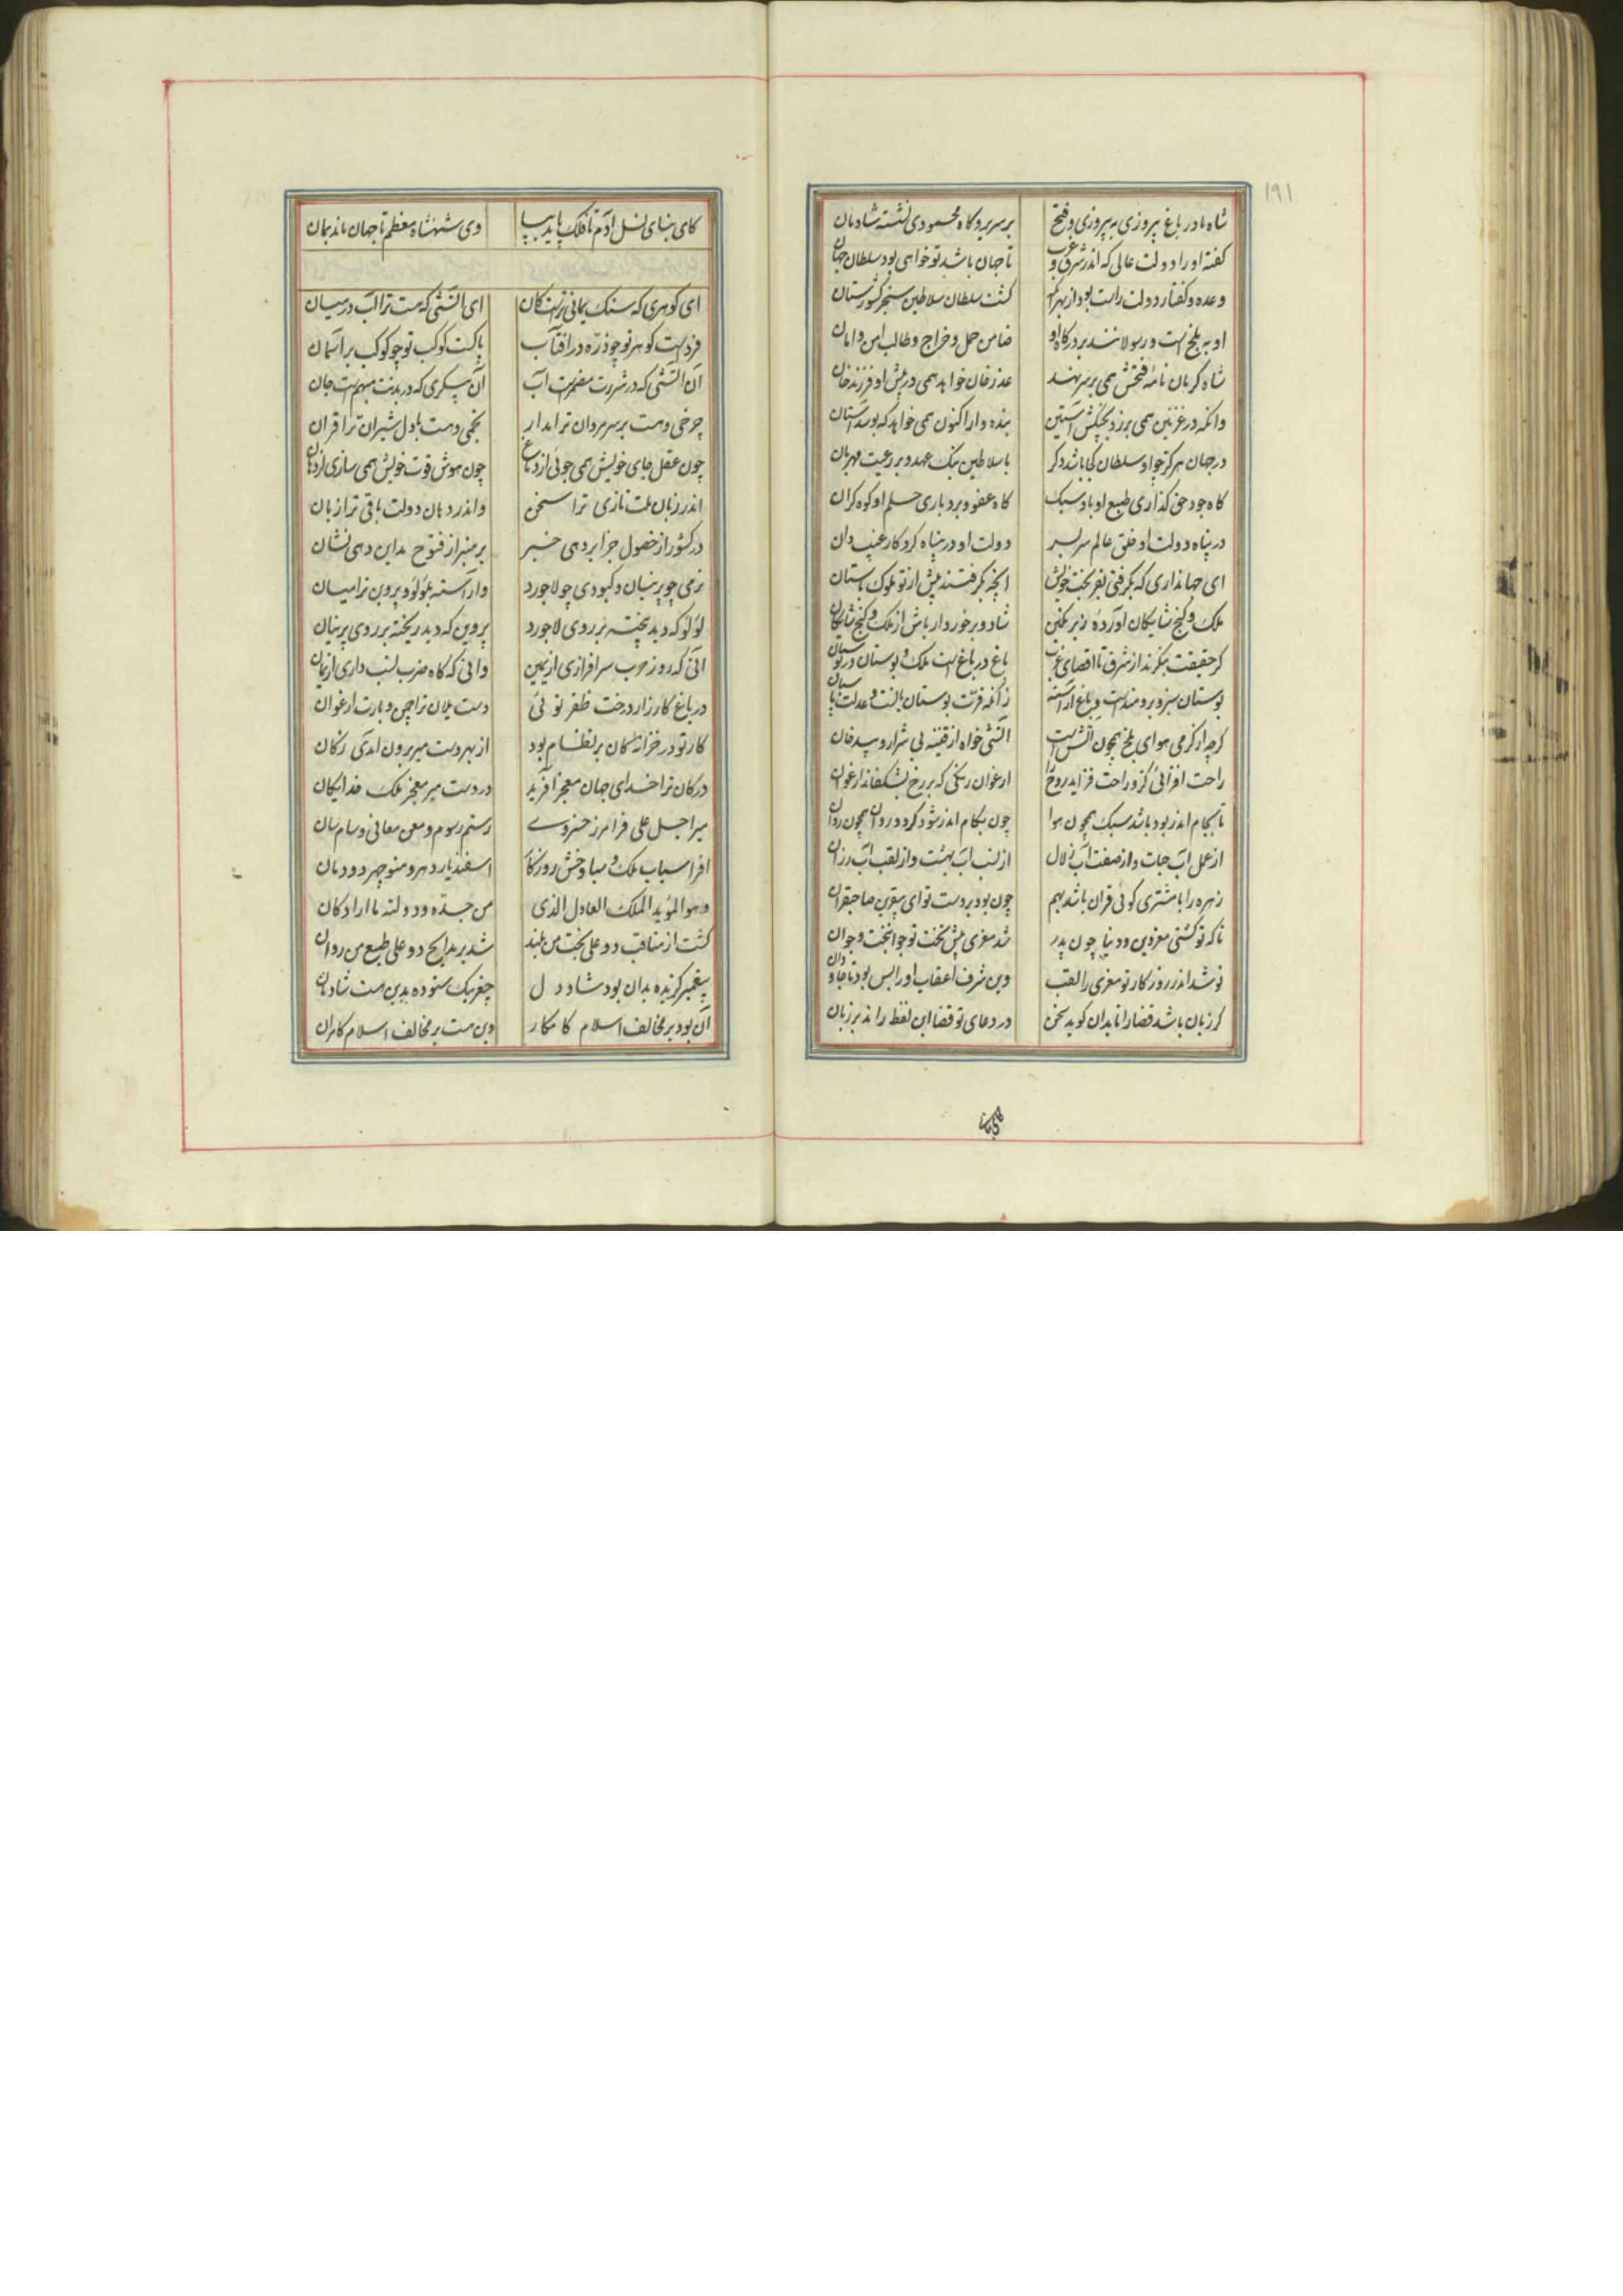 ۱۹۱
شاه ما در باغ پیروزی به پیروزی و فتح
بر سریر و گاه محمودی نشسته شادمان
گفته او را دولت عالی که اندر شرق و غرب
تا جهان باشد تو خواهی بود سلطان جهان
وعده و گفتار دولت راست بود از بهر آنک
گشت سلطان سلاطین سنجر کشورستان
او به بلخ است و رسولانند بر درگاه او
ضامن حمل و خراج و طالب امن و امان
شاه کرمان نامه فتحش همی بر سر نهد
عذر خان خواهد همی در پیش او فرزند خان
وانکه در غزنین همی بر زد بجنگش آستین
بنده وار اکنون همی خواهد که بوسد آستان
در جهان هرگز چو او سلطان کجا باشد دگر
با سلاطین نیک عهد و بر رعیت مهربان
گاه جود حق گذاری طبع او باد سبک
گاه عفو و بردباری حلم او کوه گران
در پناه دولت او خلق عالم سر بسر
دولت او در پناه کردگار غیب دان
ای جهانداری که بگرفتی بفر بخت خویش
آنچه بگرفتند پیش از تو ملوک باستان
ملک و گنج شایگان آورده زیر نگین
شاد و برخوردار باش از ملک و گنج شایگان
گر حقیقت بنگرند از شرق تا اقصای غرب
باغ در باغ است ملک و بوستان در بوستان
بوستان سبز و برومند است و باغ آراسته
زانکه فرت بوستان بانست و عدلت پاسبان
گرچه از گرمی هوای بلخ همچون آتش است
آتشی خواه از قنینه بی شرار و بی دخان
راحت افزائی کزو راحت فزاید روح را
ارغوان رنگی که بر رخ بشکفاند ارغوان
تا بجام اندر بود باشد سبک همچون هوا
چون بکام اندر شود گردد روان همچون روان
از عمل آب حیات و از صفت آب زلال
از نسب آب بهشت و از لقب آب رزان
زهره را با مشتری گوئی قران باشد بهم
چون بود بر دست تو ای بیقرین صاحبقران
تا که تو گشتی معز دین و دنیا چون پدر
شد معزی پیش تخت تو جوانبخت و جوان
نو شد اندر روزگار تو معزی را لقب
وین شرف اعقاب او را بس بود تا جاودان
گر زبان باشد قضا را تا بدان گوید سخن
در دعای تو قضا این لفظ راند بر زبان
کای بنای نسل آدم تا فلک پاید بپا
وی شهنشاه معظم تا جهان ماند بمان
ای گوهری که سنگ یمانی تراست کان
ای آتشی که هست ترا آب در میان
فرد است گوهر تو چو ذره در آفتاب
پاکست کوکب تو چو کوکب بر آسمان
آن آتشی که در شررت مضمرست آب
آن پیکری که در بدنت مبهم است جان
چرخی و هست بر سر مردان ترا مدار
نجمی و هست با دل شیران ترا قران
چون عقل جای خویش همی جوئی از دماغ
چون هوش قوت خویش همی سازی از دهان
اندر زبان ملت تازی ترا سخن
واندر دهان دولت باقی ترا زبان
در کشور از حصول جزایر دهی خبر
بر منبر از فتوح مداین دهی نشان
نرمی چو پرنیان و کبودی چو لاجورد
وآراسته بلؤلؤ و پروین ترا میان
لؤلؤ که دید بیخته بر روی لاجورد
پروین که دید ریخته بر روی پرنیان
آنی که روز حرب سرافرازی از یمین
وانی که گاه ضرب نسب داری از یمان
در باغ کارزار درخت ظفر توئی
دست یلان ترا چمن و بارت ارغوان
کار تو در خزانه کان بر نظام بود
از بهر دست میر برون آمدی ز کان
در کان ترا خدای جهان معجز آفرید
در دست میر معجز ملک خدایگان
میر اجل علی فرامرز خسروے
رستم رسوم و معن معانی و سام سان
افراسیاب ملک و سیاوخش روزگار
اسفندیار دهر و منوچهر دودمان
و هو المؤید الملک العادل الذی
من جده و دولته ما اراد کان
گشت از مناقب دو علی بخت من بلند
شد بر مدایح دو علی طبع من روان
پیغمبر گزیده بدان بود شاد دل
چغریبک ستوده بدین هست شادمان
آن بود بر مخالف اسلام کامکار
وین هست بر مخالف اسلام کامران